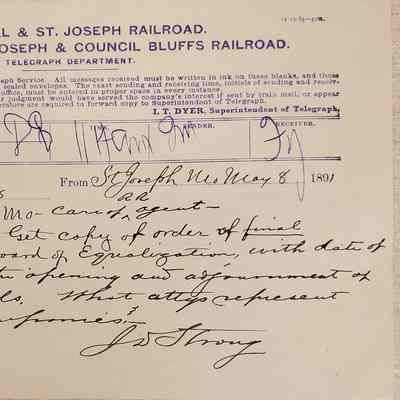 L & ST. JOSEPH RAILROAD.
OSEPH & COUNCIL BLUFFS RAILROAD.
TELEGRAPH DEPARTMENT.
raph Service. All messages received must be written in ink on these blanks, and those
sealed envelopes. The exact sending and receiving time, initials of sending and receiv-
office, must be entered in proper space in every instance.
judgment would have served the company's interest if sent by train mail, or appear
erature are required to forward copy to Superintendent of Telegraph.
I. T. DYER, Superintendent of Telegraph.
SENDER. RECEIVER.
From St Joseph Mo May 8 1891
RR
Mo - care of agent -
Get copy of order of final
oard of Equalization, with date of
opening and adjournment of
What attys represent
J D Strong